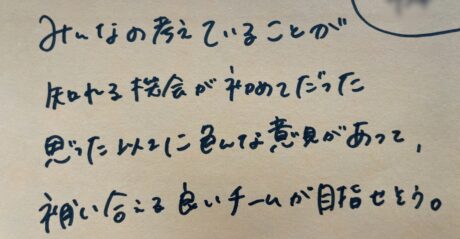 みんなの考えていることが
知れる機会が初めてだった
思った以上に色んな意見があって、
補い合える良いチームが目指せそう。